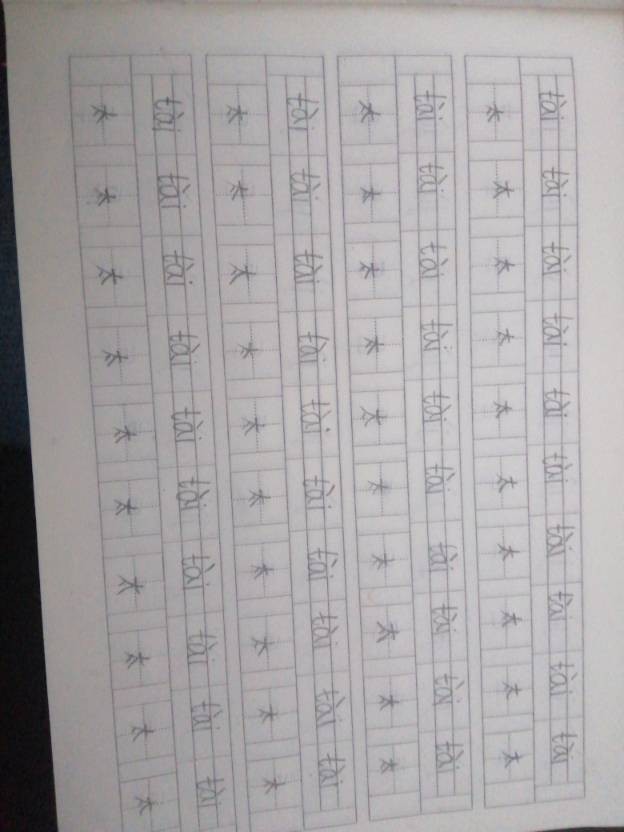 tài tài tài tài tài tài tài tài tài tài
太 太 太 太 太 太 太 太 太 太
tài tài tài tài tài tài tài tài tài tài
太 太 太 太 太 太 太 太 太 太
tài tài tài tài tài tài tài tài tài tài
太 太 太 太 太 太 太 太 太 太
tài tài tài tài tài tài tài tài tài tài
太 太 太 太 太 太 太 太 太 太